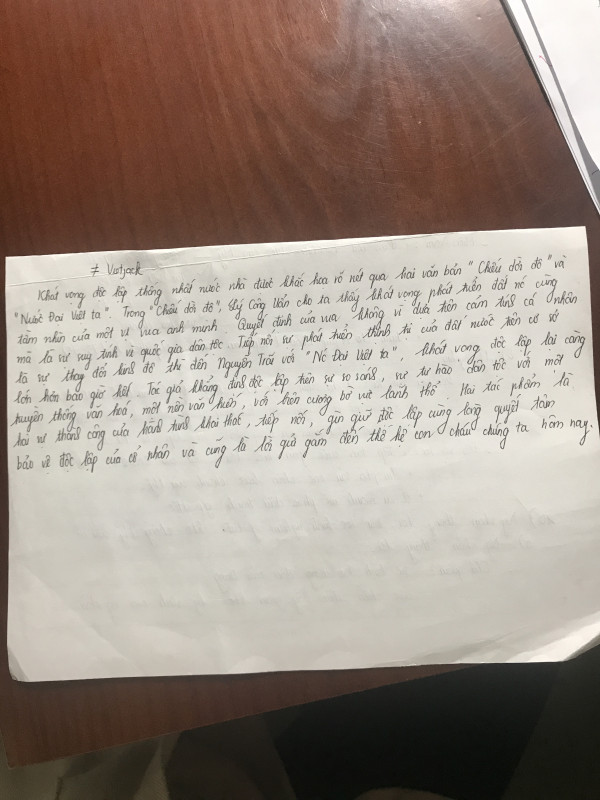 ≠ Vietjack
Khát vọng độc lập thống nhất nước nhà được khắc họa rõ nét qua hai văn bản "Chiếu dời đô" và
"Nước Đại Việt ta". Trong "Chiếu dời đô", Lý Công Uẩn cho ta thấy khát vọng, phát triển đất nó cùng
tầm nhìn của một vị vua anh minh. Quyết định của vua không vì dựa trên cảm tính cá nhân
mà là sự suy tính vì quốc gia dân tộc. Tiếp nối sự phát triển thịnh trị của đất nước trên cơ sở
là sự thay đổi kinh đô thì đến Nguyễn Trãi với "Nc Đại Việt ta", khát vọng độc lập lại càng
lớn hơn bao giờ hết. Tác giả khẳng định độc lập trên sự so sánh, sự tự hào dân tộc với một
truyền thống văn hoá, một nền văn hiến, với biên cương bờ vực lãnh thổ. Hai tác phẩm là
hai sự thành công của hành trình khai thác, tiếp nối, gìn giữ độc lập cùng lòng quyết tâm
bảo vệ độc lập của cổ nhân và cũng là lời gửi gắm đến thế hệ con cháu chúng ta hôm nay.